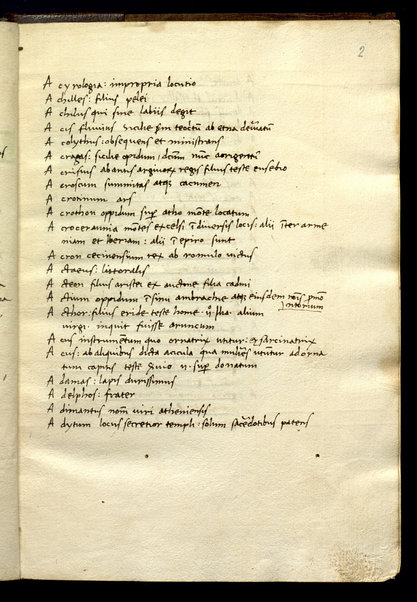 2
A cyrologia: impropria locutio
A chilles: filius pelei
A chilus qui sine labiis degit
A cis fluvius Sicilie
A colythus: obsequens et ministrans
A cragas: sicilie opidum, nunc
A crisius abantis regis filius teste eusebio
A croscum summitas atque cacumen
A cronium ars
A crothon oppidum super atho monte locatum
A croceraunia montes excelsi in diversis locis: alii inter arme
niam et iberiam: alii in epiro sunt
A cron cecinensium rex ab romulo victus
A ctaeus: littoralis
A cteon filius aristei ex filia cadmi
A ctium oppidum in sinu ambrachie atque eiusdem
A cthor: filius teste home. alium
virgi. inquit fuisse aruncum
A cus instrumentum quo ornatrix utitur: et sarcinatrix
A cus: ab aliquibus dicta accula qua mulieres utuntur ad orna
tum capitis teste donatum
A damas: lapis durissimus
A delphos: frater
A dimantus nomen viri atheniensis
A dytum locus secretior templi: solum sacerdotibus patens